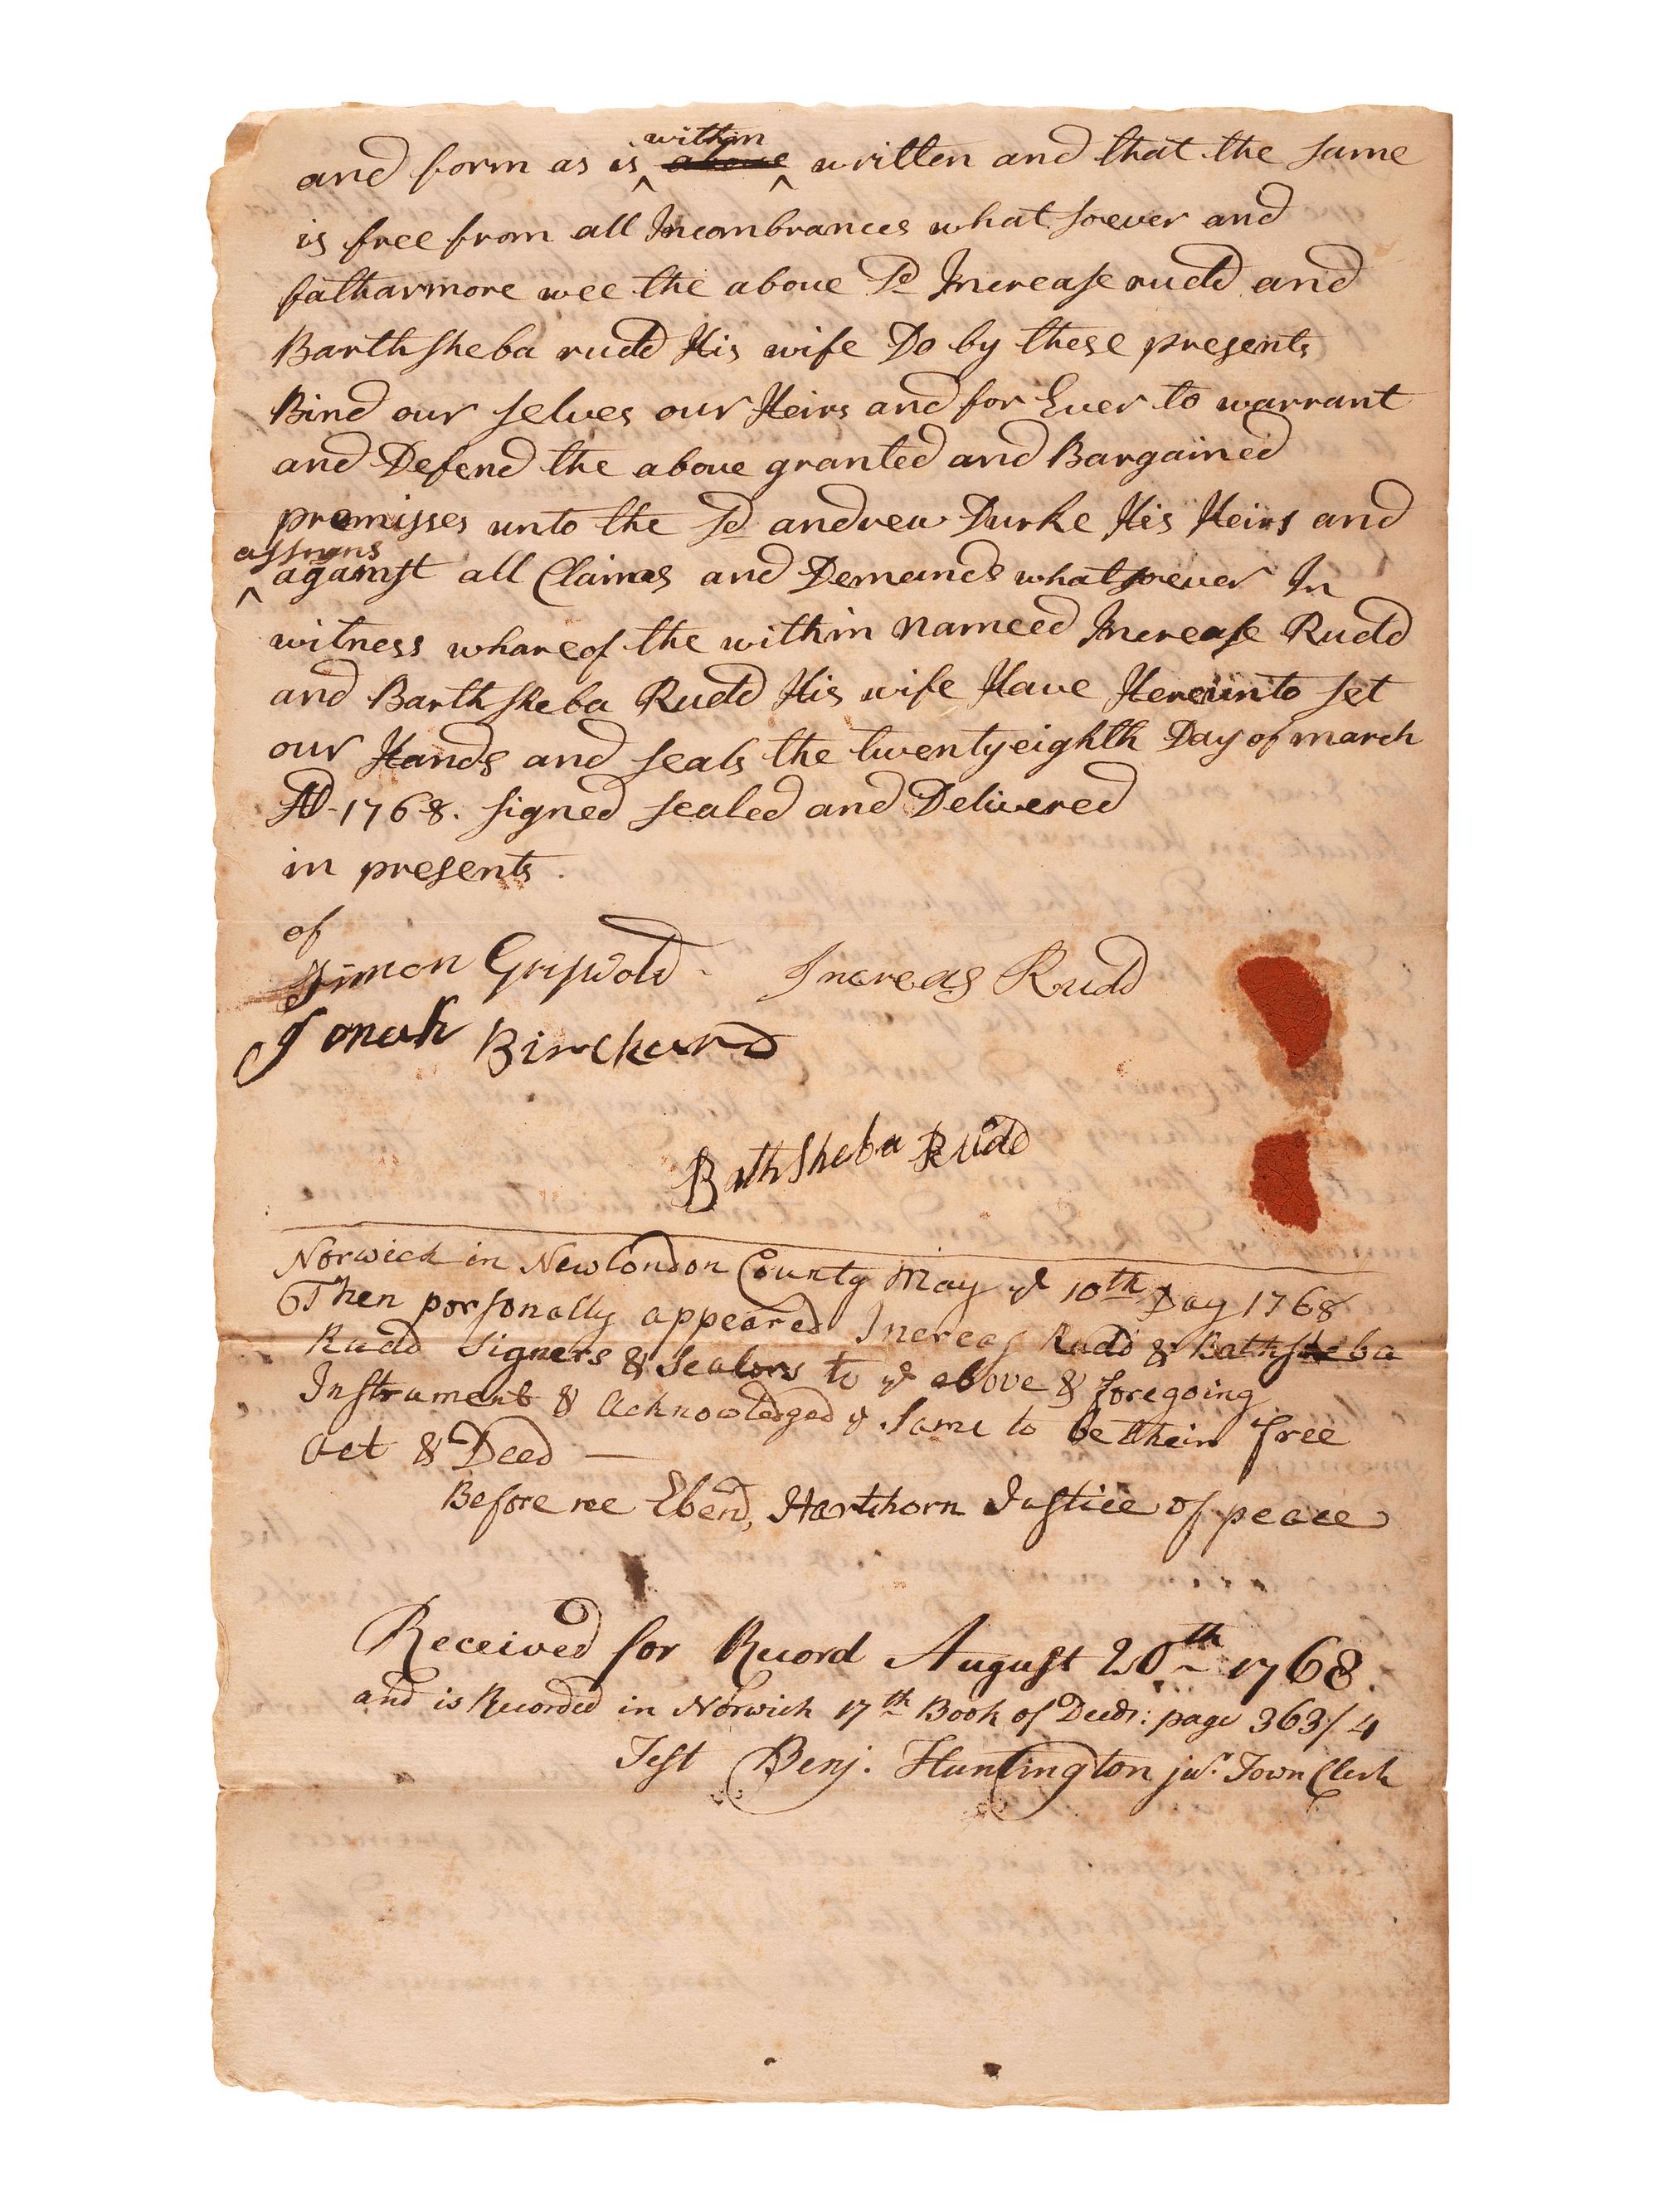 within
and form as is ^ above ^ written and that the same
is free from all Incombrances what soever and
fatharmore wee the above sd Increase rudd and
Barthsheba rudd His wife Do by these presents
Bind our selves our Heirs and for Ever to warrant
and Defend the above granted and Bargained
premisses unto the sd andrew Durke His Heirs and
assigns
^ against all Claimes and Demands whatsoever In
witness whareof the within nameed Increase Rudd
and Barthsheba Rudd His wife Have Hereunto set
our Hands and seals the twentyeighth Day of march
AD-1768. signed sealed and Delivered
in presents.
of
Simon Griswold - Increas Rudd
Jonah Birchard
Bathsheba Rudd
Norwich in New London County May ye 10th Day 1768
Then porsonally appeared Increas Rudd & Bathsheba
Rudd Signers & Sealors to ye above & foregoing
Instrument & Acknowledged ye Same to be their free
Act & Deed —
Before me Ebenr, Hartshorn Justice of peace
Received for Record August 20th 1768.
and is Recorded in Norwich 17th Book of Deeds: page 363/4
Test Benj. Huntington jur. Town Clerk